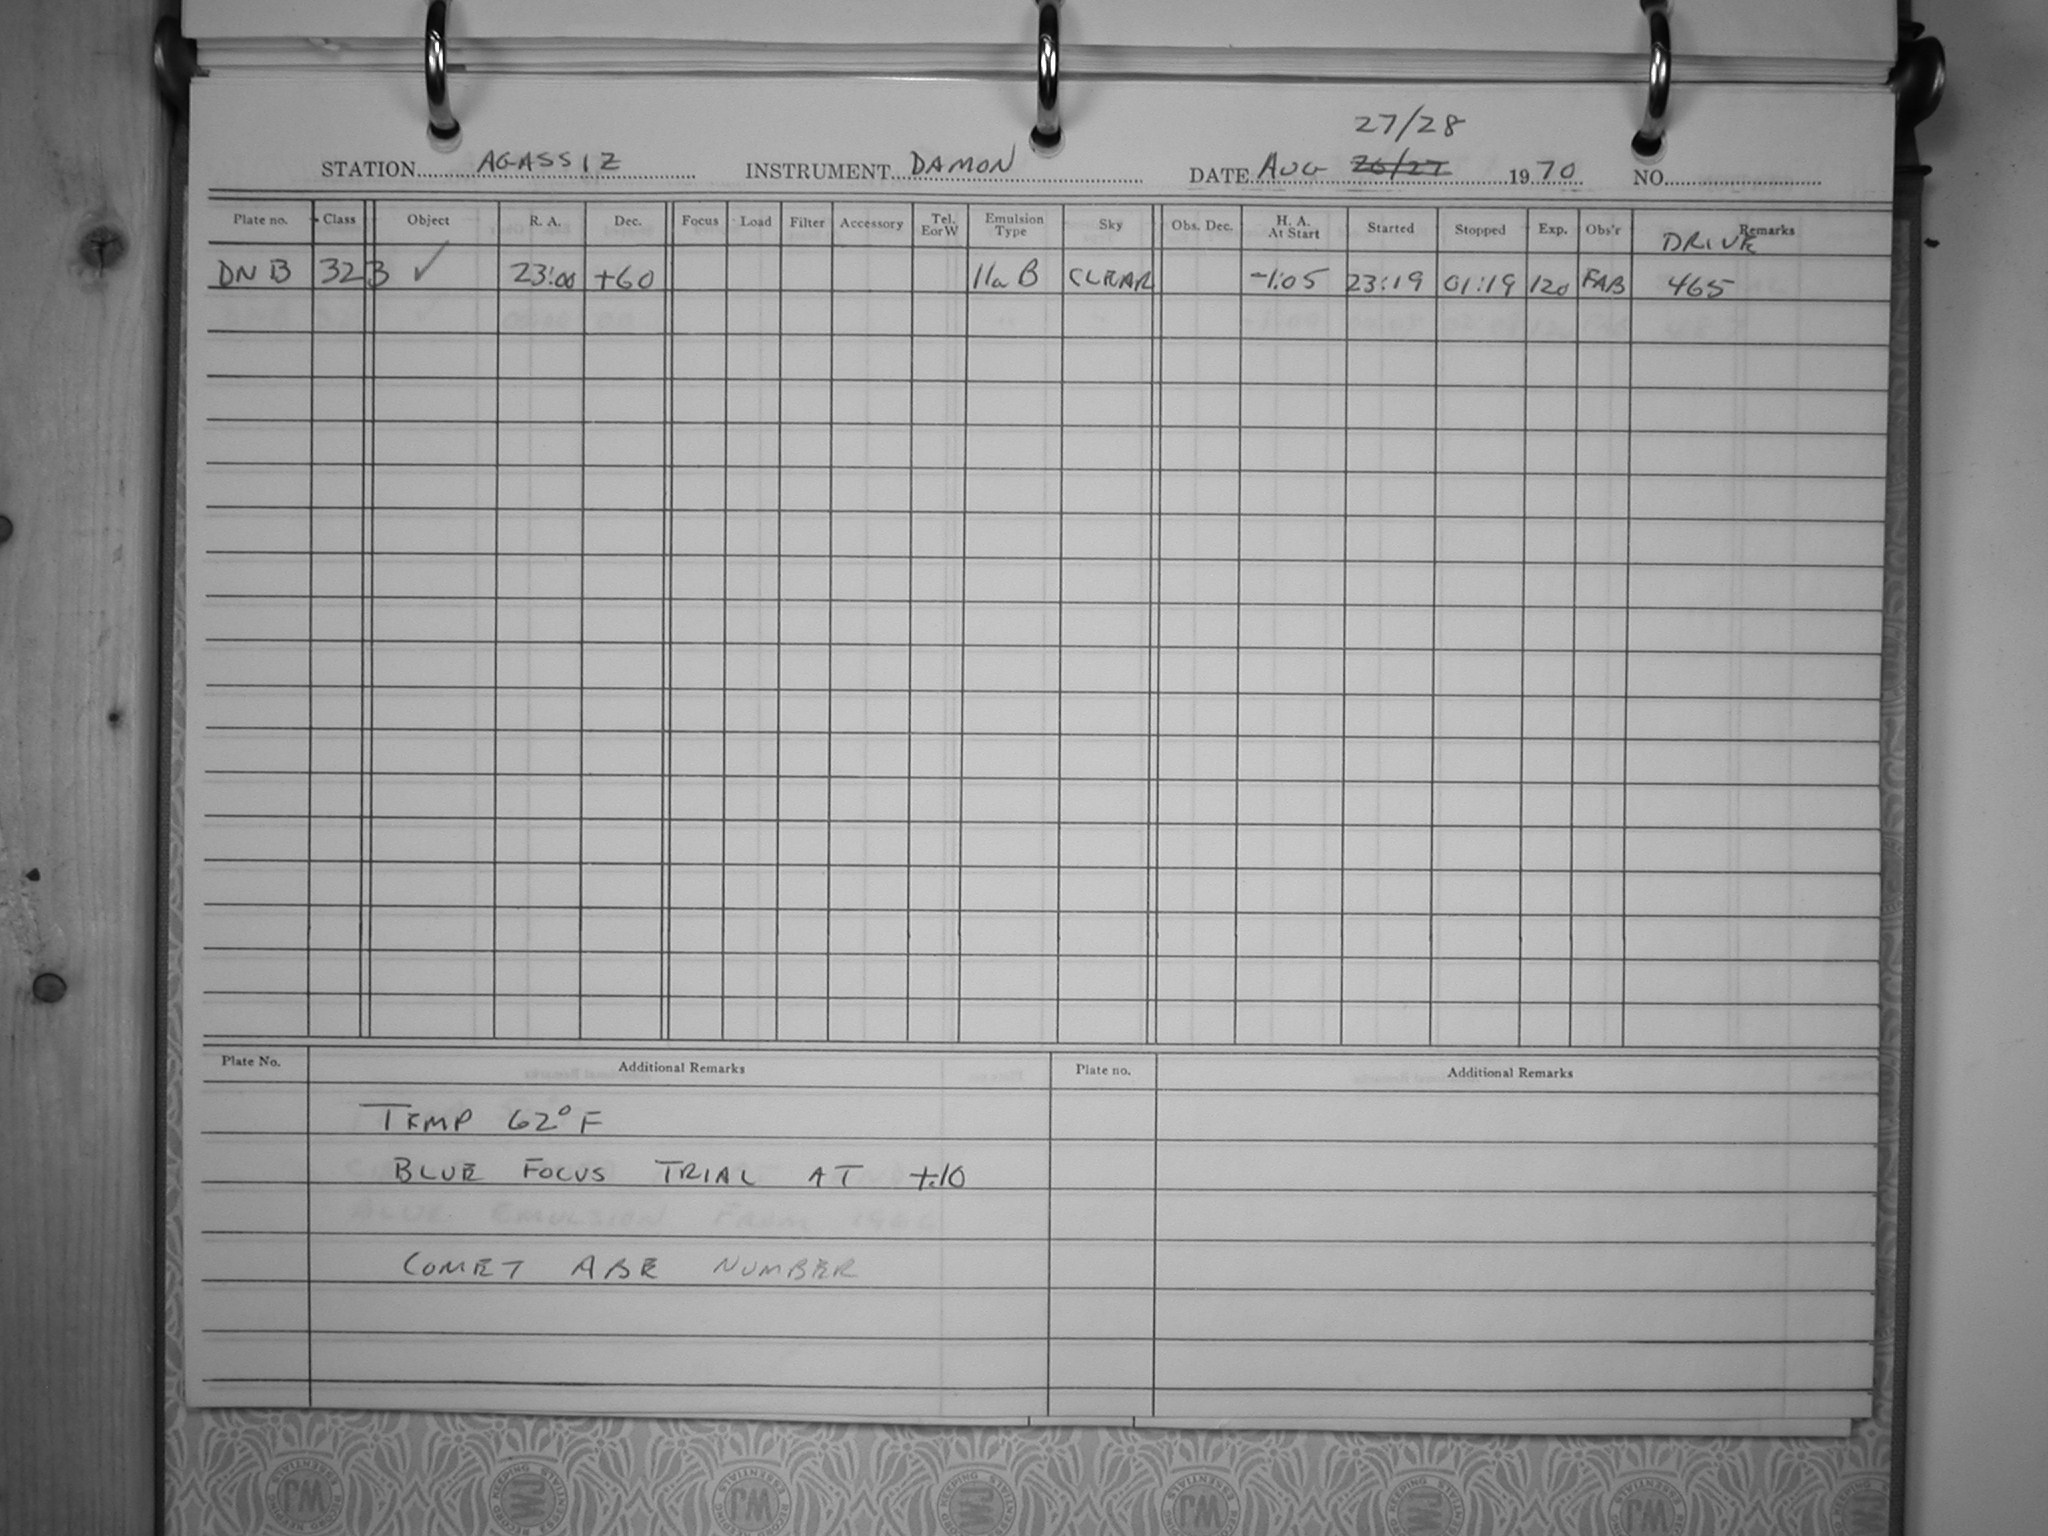 27/28
STATION AGASSIZ INSTRUMENT DAMON DATE AUG 26/27 1970 NO.
Plate no. Class Object R. A. Dec. Focus Load Filter Accessory Tel. E or W Emulsion Type Sky Obs. Dec. H. A. At Start Started Stopped Exp. Obs'r Remarks
DRIVE
DNB 323 ✓ 23:00 +60 IIa B CLEAR -1:05 23:19 01:19 120 FAB 465
Plate No. Additional Remarks Plate no. Additional Remarks
TEMP 62°F
BLUE FOCUS TRIAL AT +.10
COMET ABE NUMBER